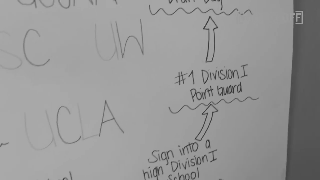 SC UW
#1 Division I
Point Guard
UCLA
Sign into a
high Division I
School